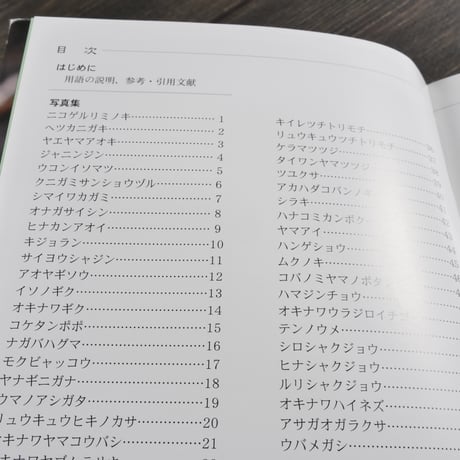 目　次
はじめに
用語の説明、参考・引用文献
写真集
ニコゲルリミノキ……………………1
ヘツカニガキ……………………2
ヤエヤマアオキ……………………3
ジャニンジン……………………4
ウコンイソマツ……………………5
クニガミサンショウヅル……………………6
シマイワカガミ……………………7
オナガサイシン……………………8
ヒナカンアオイ……………………9
キジョラン……………………10
サイヨウシャジン……………………11
アオヤギソウ……………………12
イソノギク……………………13
オキナワギク……………………14
コケタンポポ……………………15
ナガバハグマ……………………16
モクビャッコウ……………………17
ヤナギニガナ……………………18
ウマノアシガタ……………………19
リュウキュウヒキノカサ……………………20
オキナワヤマコウバシ……………………21
キイレツチトリモチ
リュウキュウツチトリモチ
ケラマツツジ
タイワンヤマツツジ
ツユクサ
アカハダコバンノキ
シラキ
ハナコミカンボク
ヤマアイ
ハンゲショウ
ムクノキ
コバノミヤマノボタン
ハマジンチョウ
オキナワウラジロイチゴ
テンノウメ
シロシャクジョウ
ヒナシャクジョウ
ルリシャクジョウ
オキナワハイネズ
アサガオガラクサ
ウバメガシ